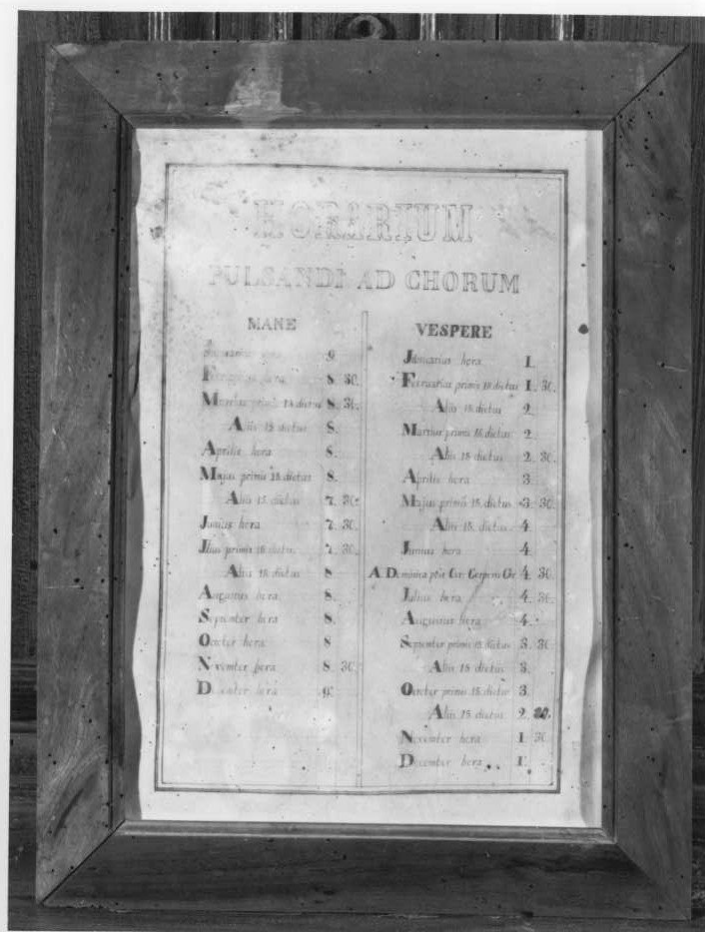 HORARIUM
PULSANDI AD CHORUM
MANE
Januarius hora 9
Februarius hora 8. 30.
Martius primis 15 dictus 8. 30.
Aliis 15 dictus 8.
Aprilis hora 8.
Majus primis 15 dictus 8.
Aliis 15 dictus 7. 30.
Junius hora 7. 30.
Jlius primis 15 dictus 7. 30.
Aliis 15 dictus 8
Augustus hora 8.
September hora 8.
October hora 8
November hora 8. 30.
December hora 9.
VESPERE
Januarius hora 1.
Februarius primis 15 dictus 1. 30.
Aliis 15 dictus 2.
Martius primis 15 dictus 2.
Aliis 15 dictus 2. 30.
Aprilis hora 3.
Majus primis 15 dictus 3. 30.
Aliis 15 dictus 4.
Junius hora 4.
A Dominica 4. 30.
Julius hora 4. 30.
Augustus hora 4.
September primis 15 dictus 3. 30
Aliis 15 dictus 3.
October primis 15 dictus 3.
Aliis 15 dictus 2. 30.
November hora 1. 30
December hora 1.